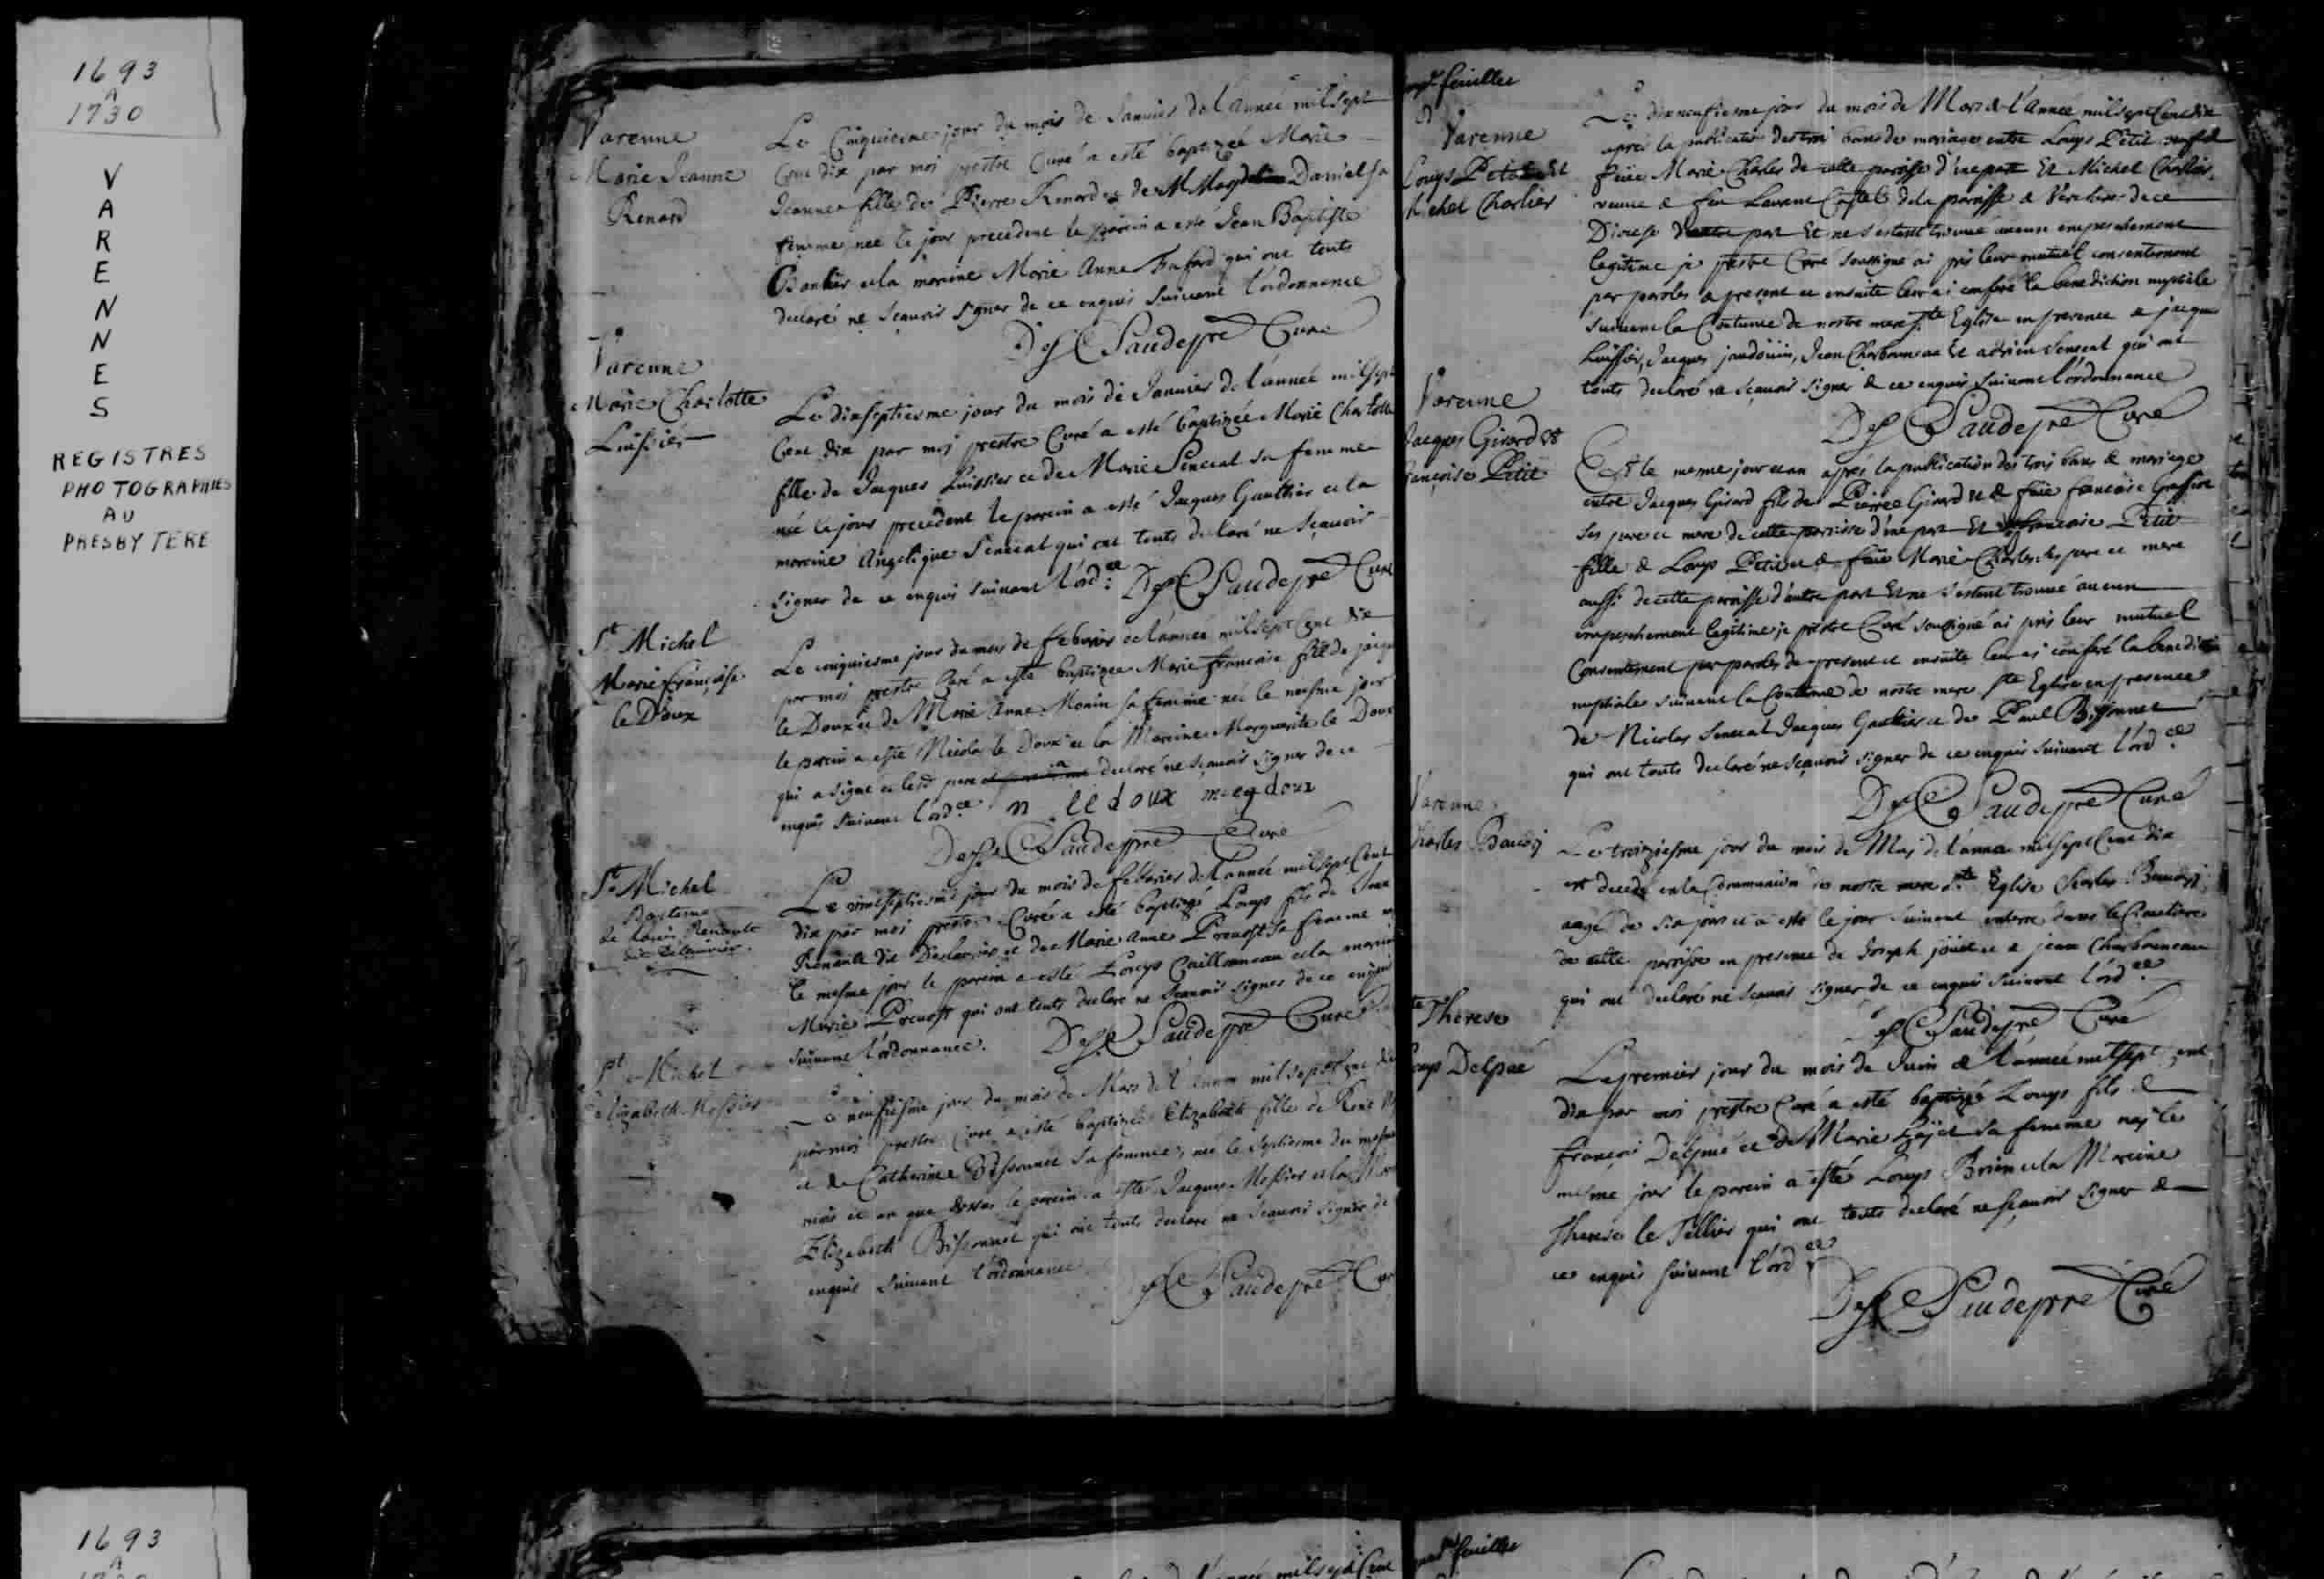 1693
A
1730
VARENNES
REGISTRES
PHOTOGRAPHIES
AU
PRESBYTERE
Varenne
Marie Jeanne
Renard
Le Cinquiesme jour du mois de Janvier de l'année mil sept
Cent dix par moi prestre Curé a esté baptizée Marie
Jeanne fille de Pierre Renard et de M Magdelaine Daniel sa
femme, née le jour precedent le parein a esté Jean Baptiste
et la mareine Marie Anne qui ont touts
declaré ne scavoir signer de ce enquis suivant l'ordonnance
Des Saudepre Curé
Varenne
Marie Charlotte
Luissier
Le dixseptiesme jour du mois de Janvier de l'année mil sept
Cent dix par moi prestre Curé a esté baptizée Marie Charlotte
fille de Jacques Luissier et de Marie Senecal sa femme
née le jour precedent le parein a esté Jacques Gaulthier et la
mareine Angelique Senecal qui ont touts declaré ne sçavoir
signer de ce enquis suivant l'ord.ce Des Saudepre Curé
St Michel
Marie françoise
le Doux
Le cinquiesme jour du mois de febvrier de l'année mil sept Cent dix
par moi prestre Curé a esté baptizée Marie francoise fille de jacques
le Doux et de Marie Anne Monin sa femme née le mesme jour
le parein a esté Nicolas le Doux et la Mareine Marguerite le Doux
qui a signé et led. pere a declaré ne sçavoir signer de ce
enquis suivant l'ord.ce n ledoux
Des Saudepre Curé
St Michel
Bapteme
de Louis Renault
Le vintseptiesme jour du mois de febvrier de l'année mil sept Cent
dix par moi prestre Curé a esté baptizé Louys fils de Jean
Renault dit Deslauriers et de Marie Anne Prevost sa femme
le mesme jour le parein a esté Louys Guillonneau et la mareine
Marie Prevost qui ont touts declaré ne sçavoir signer de ce enquis
suivant l'ordonnance. Des Saudepre Curé
St Michel
Elizabeth Messier
Le neufiesme jour du mois de Mars de l'année mil sept Cent dix
par moi prestre Curé a esté baptizée Elizabeth fille de René
et de Catherine Bissonnet sa femme, née le septiesme du mesme
mois et an que dessus le parein a esté Jacques Messier et la Mareine
Elizabeth Bissonnet qui ont touts declaré ne sçavoir signer de
enquis suivant l'ordonnance
Des Saudepre Curé
feuillet
Varenne
Louys Petit Et
Michel Charlier
Le dixneufiesme jour du mois de Mars de l'Année mil sept Cent dix
aprés la publication des trois bans de mariage entre Louys Petit veuf de
füe Marie Charles de cette paroisse d'une part Et Michel Charlier
veuve de feu Laurent Castel de la paroisse de Verchere de ce
Diocese d'autre part Et ne s'estant trouvé aucun empeschement
legitime je prestre Curé soussigné ai pris leur mutuel consentement
par paroles de present et ensuite leur ai conferé la benediction nuptiale
suivant la Coutume de nostre mere Ste Eglise en presence de jacques
Luissier, Jacques jaudoüin, Jean Charbonneau Et adrien Senecal qui ont
touts declaré ne sçavoir signer de ce enquis suivant l'ordonnance
Des Saudepre Curé
Varenne
Jacques Girard &
françoise Petit
Et le mesme jour et an aprés la publication des trois bans de mariage
entre Jacques Girard fils de Pierre Girard et de füe francoise
ses pere et mere de cette paroisse d'une part Et francoise Petit
fille de Louys Petit et de füe Marie Charles ses pere et mere
aussi de cette paroisse d'autre part Et ne s'estant trouvé aucun
empeschement legitime je prestre Curé soussigné ai pris leur mutuel
Consentement par paroles de present et ensuite leur ai conferé la benediction
nuptiale suivant la Coutume de nostre mere Ste Eglise en presence
de Nicolas Senecal Jacques Gaultier et de Paul Bissonnet
qui ont touts declaré ne sçavoir signer de ce enquis suivant l'ord.ce
Des Saudepre Curé
Varenne
Charles
Le troiziesme jour du mois de May de l'année mil sept Cent dix
est decedé en la Communion de nostre mere Ste Eglise Charles
aagé de six jours et a esté le jour suivant enterré dans le Cimetiere
de cette paroisse en presence de Joseph et de jean Charbonneau
qui ont declaré ne scavoir signer de ce enquis suivant l'ord.ce
Des Saudepre Curé
Ste Therese
Louys Delpué
Le premier jour du mois de Juin de l'année mil sept cent
dix par moi prestre Curé a esté baptizé Louys fils de
françois Delpué et de Marie sa femme nay le
mesme jour le parein a esté Louys Brien et la Mareine
Therese le Tellier qui ont touts declaré ne sçavoir signer de
ce enquis suivant l'ord.ce
Des Saudepre Curé
1693
A
feuillet